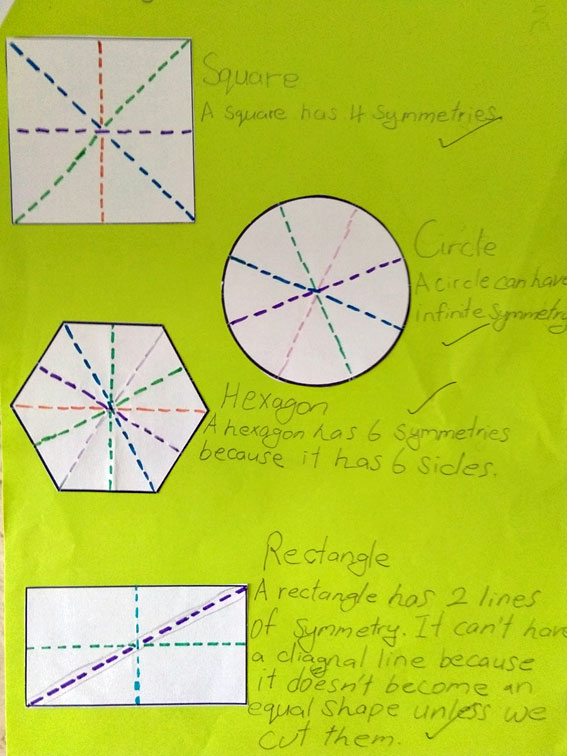 Square
A square has 4 symmetries
Circle
A circle can have
infinite symmetry
Hexagon
A hexagon has 6 symmetries
because it has 6 sides.
Rectangle
A rectangle has 2 lines
of symmetry. It can't have
a diagnal line because
it doesn't become an
equal shape unless we
cut them.